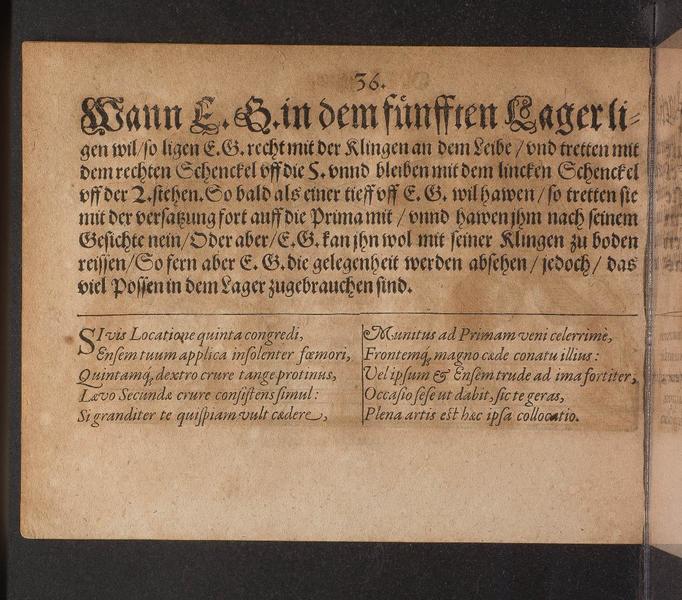 36.
Wann E. G. in dem fünfften Lager li-
gen wil/so ligen E. G. recht mit der Klingen an dem Leibe / vnd tretten mit
dem rechten Schenckel vff die 5. vnnd bleiben mit dem lincken Schenckel
vff der 2. stehen. So bald als einer tieff vff E. G. wil hawen / so tretten sie
mit der versatzung fort auff die Prima mit / vnnd hawen jhm nach seinem
Gesichte nein/Oder aber/E. G. kan jhn wol mit seiner Klingen zu boden
reissen/So fern aber E. G. die gelegenheit werden absehen / jedoch / das
viel Possen in dem Lager zugebrauchen sind.
SI vis Locatione quinta congredi,
Ensem tuum applica insolenter fœmori,
Quintamq́, dextro crure tange protinus,
Lævo Secundæ crure consistens simul:
Si granditer te quispiam vult cædere,
Munitus ad Primam veni celerrimè,
Frontemq́, magno cæde conatu illius:
Vel ipsum & Ensem trude ad ima fortiter,
Occasio sese ut dabit, sic te geras,
Plena artis est hæc ipsa collocatio.